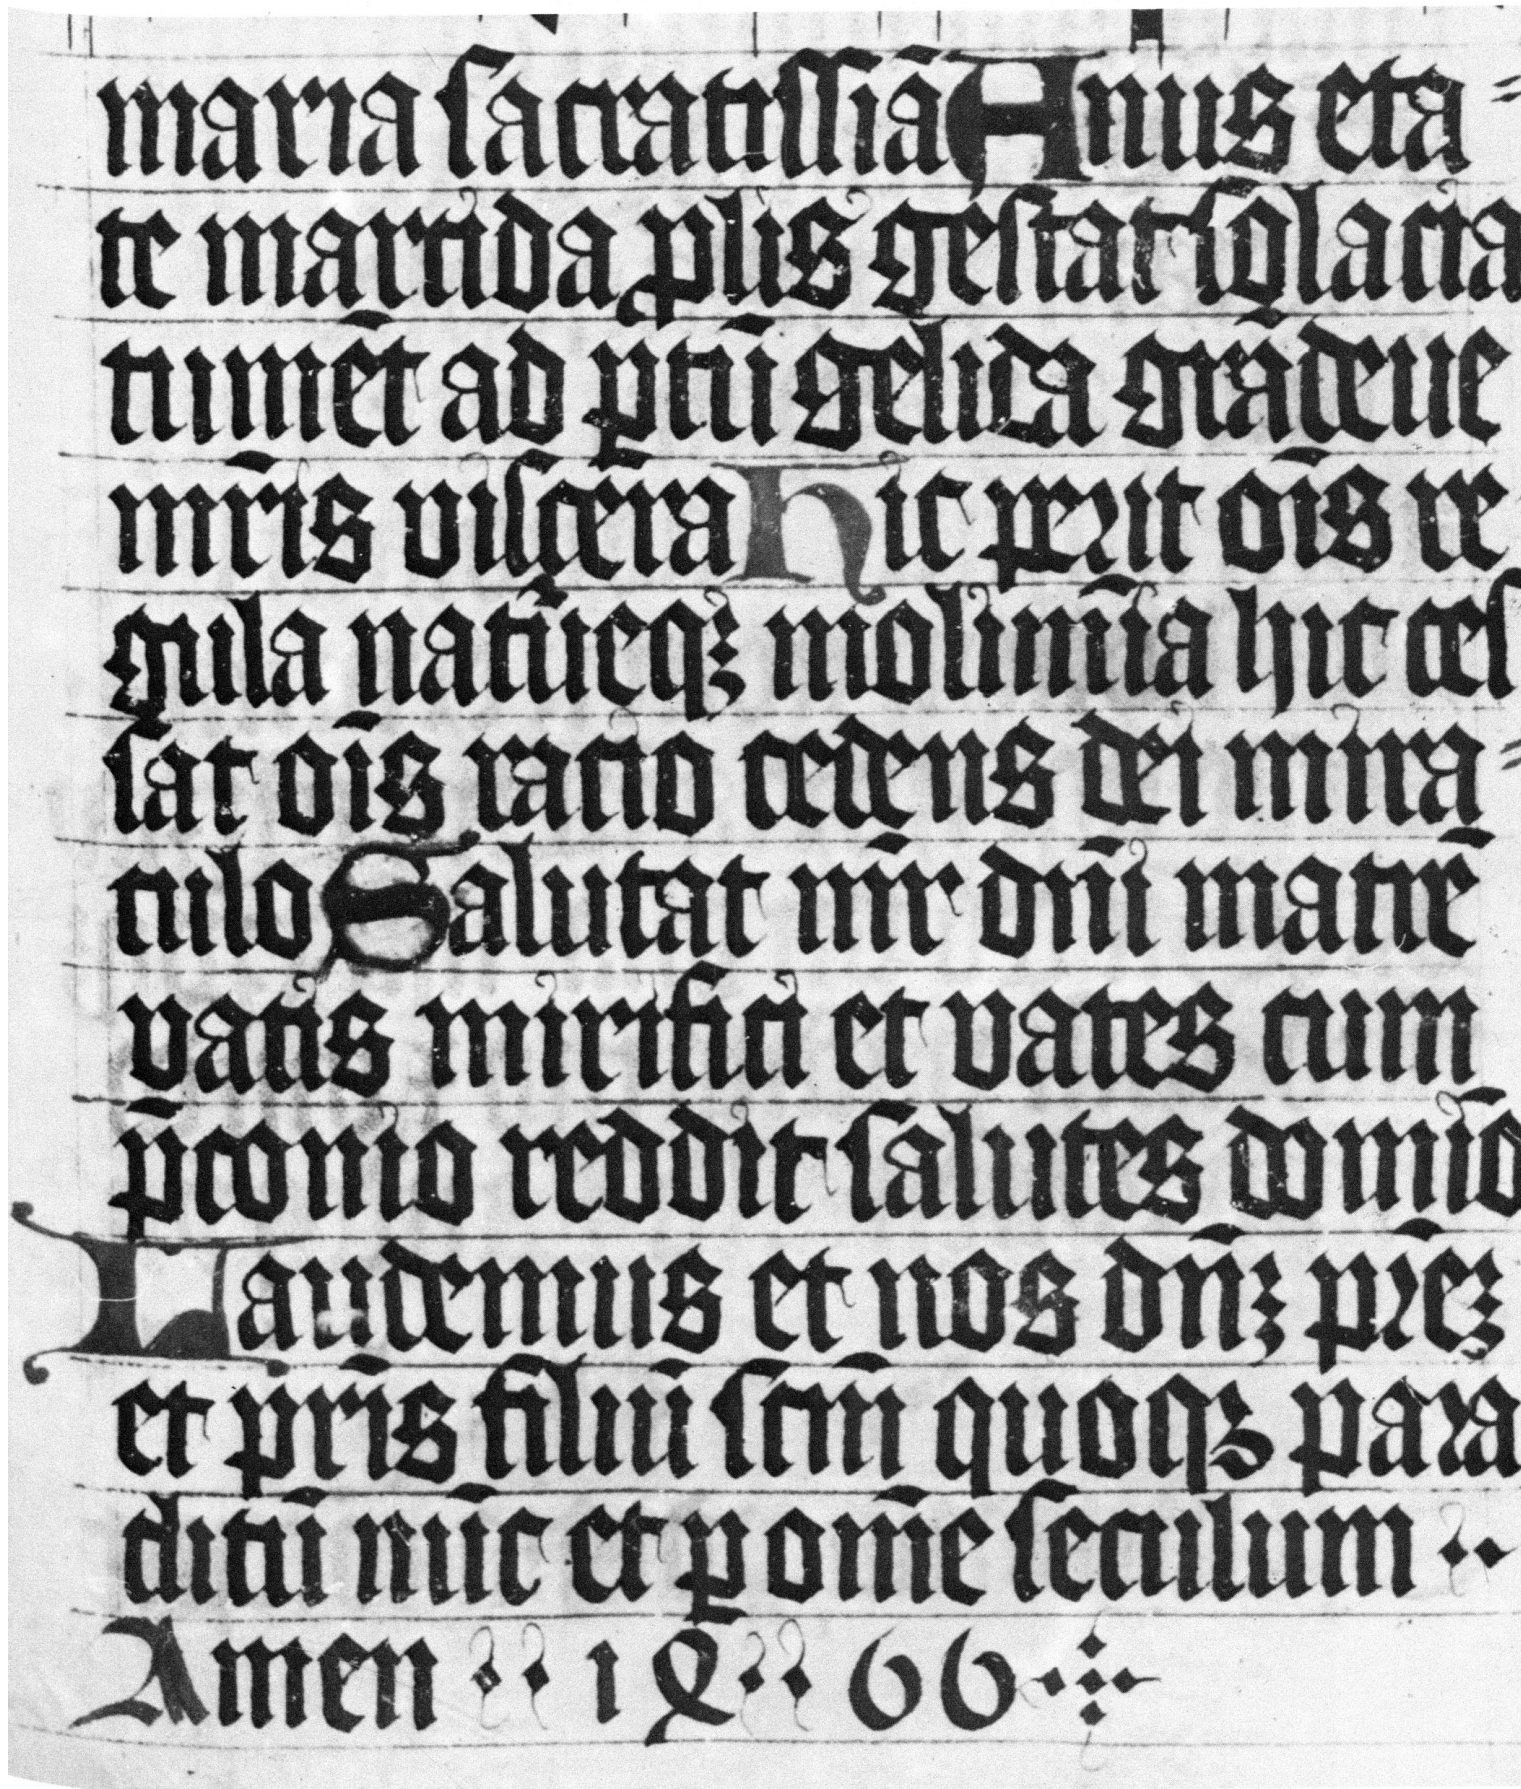 maria sacratissīa Anus eta⸗
te marcida ꝓlis gestat solacia
tumēt ad ꝑtū gelida grādeue
mr̄is viscera hic perit oīs re
gula natūeqꝫ molimīa hic ces
sat oīs racio cedens dei mira⸗
culo Salutat mr̄ dn̄i matrē
vatis mirifici et vates cum
p̄conio reddit salutes domīo
Laudemus et nos dn̄ꝫ pr̄eꝫ
et pr̄is filiū scm̄ quoqꝫ para
clitū nūc et ꝑ om̄e seculum ··
Amen ·· 1 ꝝ ·· 66 ·:·